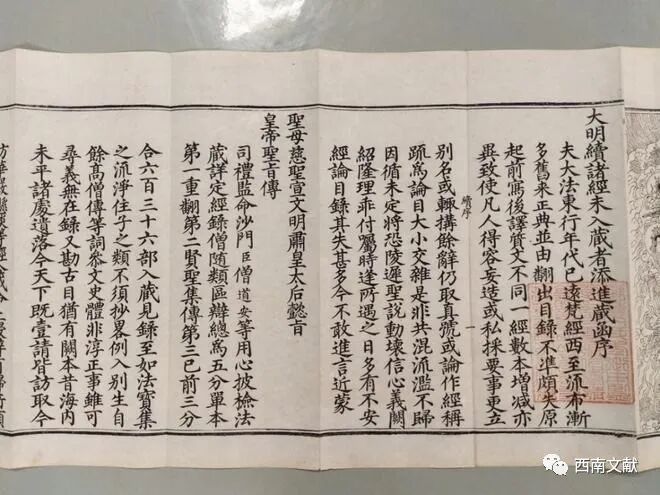 大明續諸經未入藏者添進藏函序
夫大法東行年代已遠梵經西至流布漸
多舊來正典並由翻出目錄不準頗失原
起前寫後譯質文不同一經數本增減亦
異致使凡人得容妄造或私採要事更立
續序
一
別名或輙搆餘辭仍取真號或論作經稱
疏爲論目大小交雜是非共混流濫不歸
因循未定將恐陵遲聖說動壞信心義闕
紹隆理乖付屬時逢所遇之日多有不安
經論目錄其失甚多今不敢進言近蒙
聖母慈聖宣文明肅皇太后懿旨
皇帝聖旨傳
司禮監命沙門臣僧道安等用心披檢法
藏詳定經錄僧隨類區辦總爲五分單本
第一重翻第二賢聖集傳第三已前三分
合六百三十六部入藏見錄至如法寶集
之流淨住子之類不須抄畧例入別生自
餘髙僧傳等詞叅文史體非淳正事雖可
尋義無在錄又勘古目猶有闕本昔海内
未平諸處遺落今天下既壹請皆訪取今
西南文献